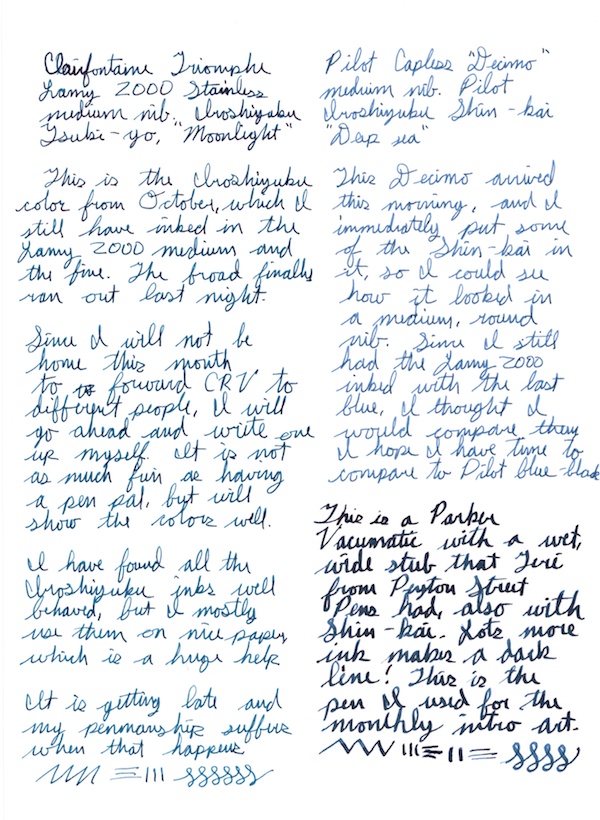 Clairfontaine Triomphe
Lamy 2000 Stainless
medium nib. Iroshizuku
Tsuki-yo, "Moonlight"
This is the Iroshizuku
color from October, which I
still have inked in the
Lamy 2000 medium and
the fine. The broad finally
ran out last night.
Since I will not be
home this month
to forward CRV to
different people, I will
go ahead and write one
up myself. It is not
as much fun as having
a pen pal, but will
show the colors well.
I have found all the
Iroshizuku inks well
behaved, but I mostly
use them on nice paper,
which is a huge help
It is getting late and
my penmanship suffers
when that happens
Pilot Capless "Decimo"
medium nib. Pilot
Iroshizuku Shin-kai
"Deep sea"
This Decimo arrived
this morning, and I
immediately put some
of the Shin-kai in
it, so I could see
how it looked in
a medium, round
nib. Since I still
had the Lamy 2000
inked with the last
blue, I thought I
would compare them
I hope I have time to
compare to Pilot blue-black
This is a Parker
Vacumatic with a wet,
wide stub that Teri
from Peyton Street
Pens had, also with
Shin-kai. Lots more
ink makes a dark
line! This is the
pen I used for the
monthly intro art.